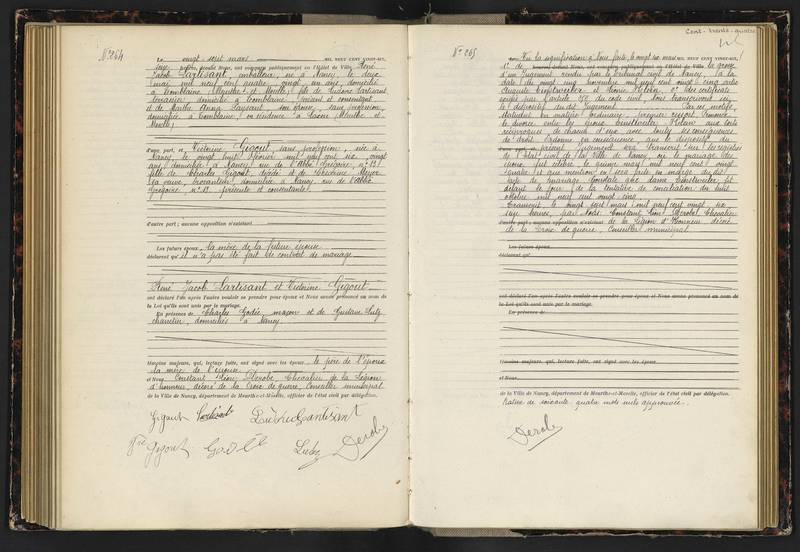 N° 264
Le vingt sept mars MIL NEUF CENT VINGT-SIX,
seize heures, devant Nous, ont comparu publiquement en l'Hôtel de Ville, René
Jacob Lartisant, emballeur, né à Nancy, le deux
mai mil neuf cent quatre, vingt un ans, domicilié
à Tomblaine (Meurthe et Moselle), fils de Ludovic Lartisant
domicilié à Tomblaine, présent et consentant
et de Marthe Anna son épouse, sans profession,
domiciliée à Tomblaine, en résidence à (Meurthe et
Moselle)
d'une part, et Victorine Gigout, sans profession, née à
Nancy, le vingt huit février mil neuf cent six, vingt
ans, domiciliée à Nancy, rue de l'abbé Grégoire, n° 13,
fille de Charles Gigout, décédé et de Catherine Meyer
sa veuve, domiciliée à Nancy, rue de l'abbé
Grégoire, n° 13, présente et consentante
d'autre part ; aucune opposition n'existant
Les futurs époux, la mère de la future épouse
déclarent qu'il n'a pas été fait de contrat de mariage
René Jacob Lartisant et Victorine Gigout
ont déclaré l'un après l'autre vouloir se prendre pour époux et Nous avons prononcé au nom de
la Loi qu'ils sont unis par le mariage.
En présence de Charles Godié, maçon et de Gustave Lutz
charretier, domiciliés à Nancy
témoins majeurs, qui, lecture faite, ont signé avec les époux, le père de l'époux
la mère de l'épouse
et Nous Constant Léon Derobe, Chevalier de la Légion
d'honneur, décoré de la Croix de guerre, Conseiller municipal
de la Ville de Nancy, département de Meurthe-et-Moselle, officier de l'état civil par délégation.
Gigout Lartisant
Gigout
Lutz
Derobe
Cent-trente-quatre
N° 265
Vu la signification à Nous faite, le vingt six mars MIL NEUF CENT VINGT-SIX,
heures devant Nous, ont comparu publiquement en l'Hôtel de Ville la grosse
d'un jugement rendu par le tribunal civil de Nancy, à la
date du vingt cinq novembre mil neuf cent vingt cinq entre
Auguste et
le dispositif dudit jugement Par ces motifs,
Statuant en matière ordinaire, premier ressort, Prononce
le divorce entre les époux aux torts
réciproques de chacun d'eux avec toutes ses conséquences
de droit. Ordonne en conséquence, que le dispositif du
d'une part, et présent jugement sera transcrit sur les registres
de l'état civil de la Ville de Nancy, où le mariage des
époux fut célébré le quinze mars mil neuf cent vingt
quatre et que mention en sera faite en marge dudit
acte de mariage. Constate que
datant le jour de la tentative de conciliation du huit
octobre mil neuf cent vingt cinq.
Transcrit le vingt sept mars mil neuf cent vingt six
seize heures, par Nous Constant Léon Derobe, Chevalier
d'autre part ; aucune opposition n'existant de la Légion d'Honneur, décoré
de la Croix de guerre, Conseiller municipal
Les futurs époux
déclarent qu'
ont déclaré l'un après l'autre vouloir se prendre pour époux et Nous avons prononcé au nom de
la Loi qu'ils sont unis par le mariage.
En présence de
témoins majeurs, qui, lecture faite, ont signé avec les époux
et Nous
de la Ville de Nancy, département de Meurthe-et-Moselle, officier de l'état civil par délégation.
Rature de soixante quatre mots nuls approuvée.
Derobe